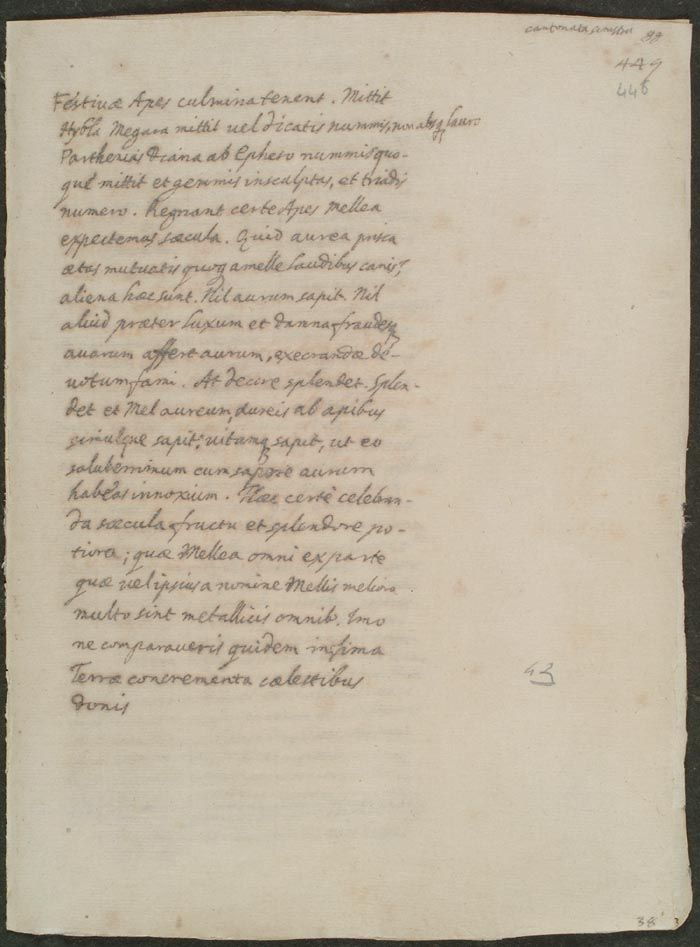 cantonata sinistra 88
449
446
Festivæ Apes culmina tenent. Mittit
Hybla Megara mittit vel dicatis nummis, non absq lauro
Parthenias Diana ab Epheso nummis quo-
que mittit et gemmis insculptas, et
numero. Regnant certe Apes Mellea
expectemus sæcula. Quid aurea prisca
ætas mutuatis quoq a melle laudibus canis?
aliena hæc sunt. Nil aurum sapit. Nil
aliud præter luxum et damna, fraudesq
avarum affert aurum, execrandæ de-
votum fami. At decore splendet. Splen-
det et Mel aureum, aureis ab apibus
simulque sapit; vitamq sapit, ut eo
saluberrimum cum sapore aurum
habeas innoxium. Hæc certè celebran-
da sæcula fructu et splendore po-
tiora; quæ Mellea omni ex parte
quæ vel ipsius a nomine Mellis meliora
multo sint metallicis omnib. Imo
ne comparaveris quidem infima
Terræ concrementa cælestibus
donis
43
38